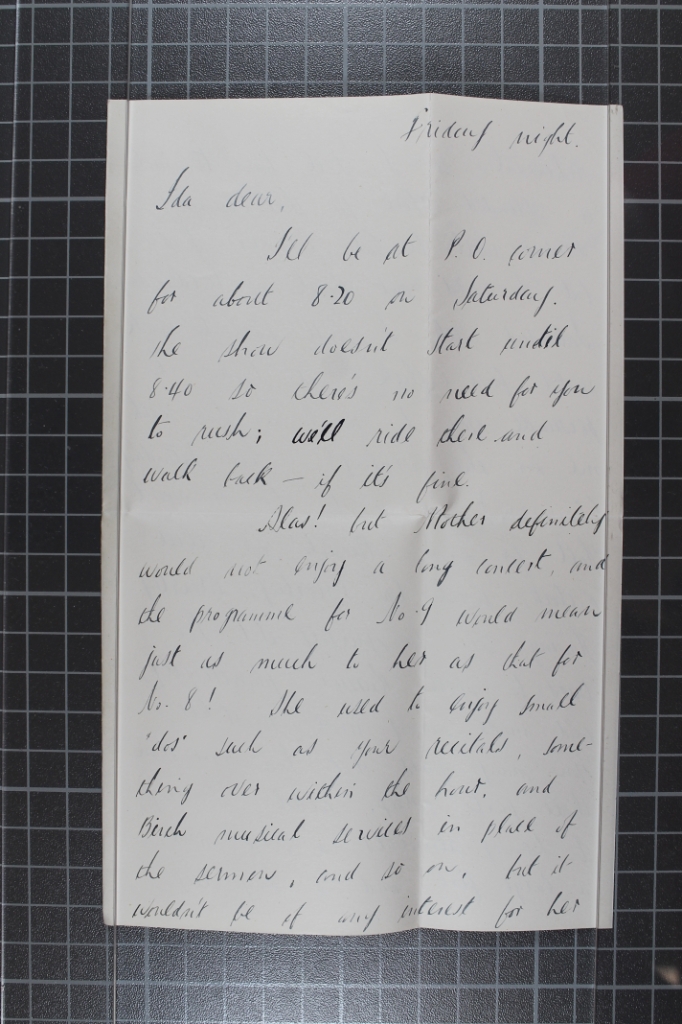 Friday night.
Ida dear,
I'll be at P.O. corner
for about 8·20 on Saturday.
The show doesn't start until
8·40 so there's no need for you
to rush; we'll ride there and
walk back — if it's fine.
Alas! but Mother definitely
would not enjoy a long concert, and
the programme for No. 9 would mean
just as much to her as that for
No. 8! She used to enjoy small
"dos" such as your recitals, some-
thing over within the hour, and
musical services in place of
the sermon, and so on, but it
wouldn't be of any interest for her